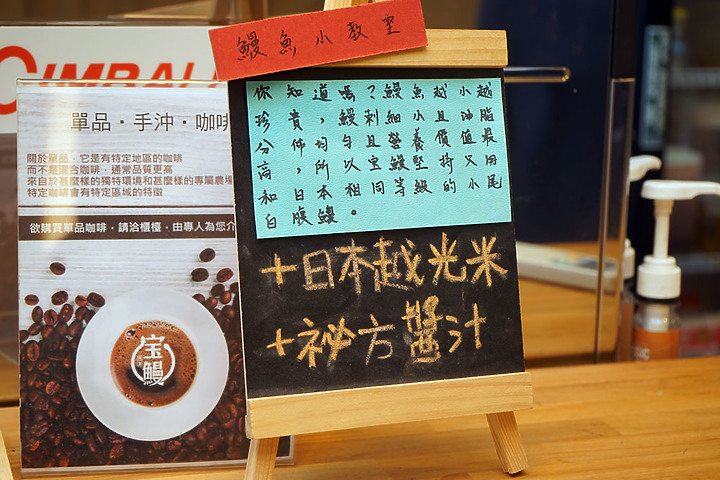 鰻魚小教室
你知道嗎？鰻魚越小越
珍貴，鰻刺細小且油脂
分佈均勻且營養價值最
高，所以宝鰻堅持只用
和日本相同等級的小尾
白腹鰻。
+日本越光米
+祕方醬汁
CIMBALI
單品・手沖・咖啡
關於單品，它是有特定地區的咖啡
而不是混合咖啡，通常品質更高
來自於甚麼樣的獨特環境和甚麼樣的專屬農場
特定咖啡會有特定區域的特徵
欲購買單品咖啡，請洽櫃檯，由專人為您介
宝鰻